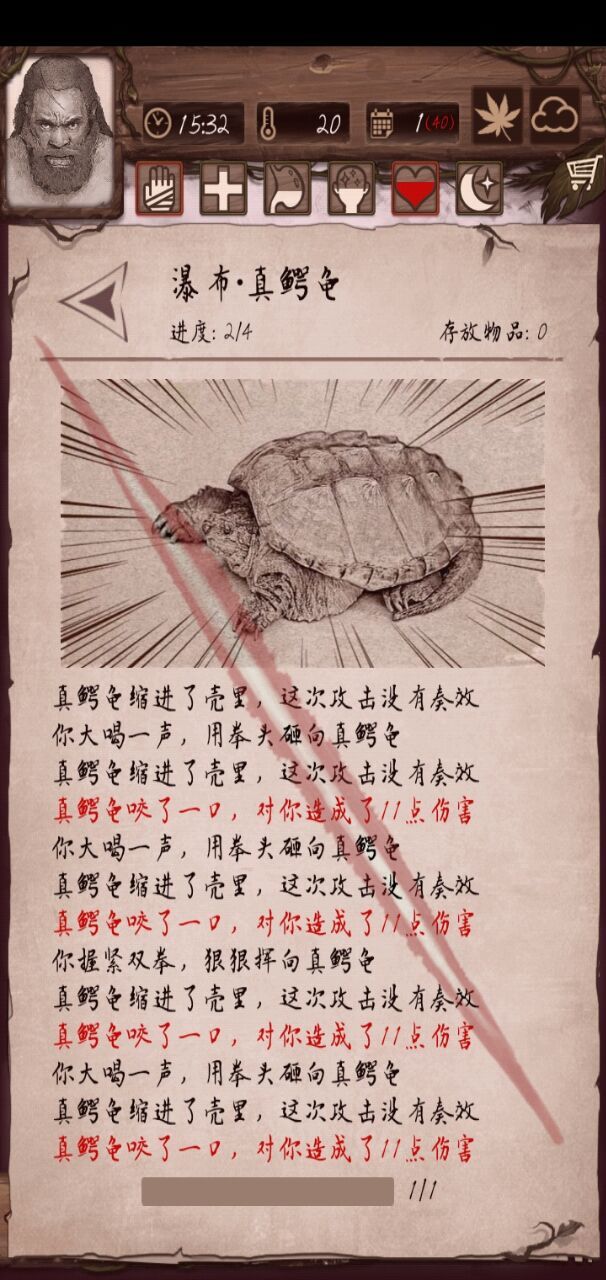 15:32
20
1(40)
瀑布·真鳄龟
进度: 2/4
存放物品: 0
真鳄龟缩进了壳里，这次攻击没有奏效
你大喝一声，用拳头砸向真鳄龟
真鳄龟缩进了壳里，这次攻击没有奏效
真鳄龟咬了一口，对你造成了11点伤害
你大喝一声，用拳头砸向真鳄龟
真鳄龟缩进了壳里，这次攻击没有奏效
真鳄龟咬了一口，对你造成了11点伤害
你握紧双拳，狠狠挥向真鳄龟
真鳄龟缩进了壳里，这次攻击没有奏效
真鳄龟咬了一口，对你造成了11点伤害
你大喝一声，用拳头砸向真鳄龟
真鳄龟缩进了壳里，这次攻击没有奏效
真鳄龟咬了一口，对你造成了11点伤害
1/1